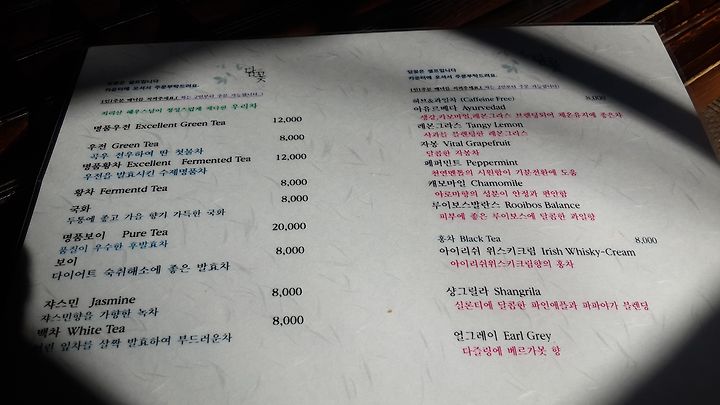 달꽃은 셀프입니다
카운터에 오셔서 주문부탁드려요.
달꽃
(1인1주문 매너를 지켜주세요.( 차는 2인부터 주문 가능합니다.)
지리산 혜우스님이 정성스럽게 제다한 우리차
명품우전 Excellent Green Tea 12,000
우전 Green Tea 8,000
곡우 전우하여 딴 첫물차
명품황차 Excellent Fermented Tea 12,000
우전을 발효시킨 수제명품차
황차 Fermentd Tea 8,000
국화 8,000
두통에 좋고 가을 향기 가득한 국화
명품보이 Pure Tea 20,000
품질이 우수한 후발효차
보이 8,000
다이어트 숙취해소에 좋은 발효차
쟈스민 Jasmine 8,000
쟈스민향을 가향한 녹차
백차 White Tea 8,000
어린 잎차를 살짝 발효하여 부드러운차
달꽃은 셀프입니다
카운터에 오셔서 주문부탁드려요.
(1인1주문 매너를 지켜주세요.( 차는 2인부터 주문 가능합니다.)
허브&과일차 (Caffeine Free) 8,000
아유르베다 Ayurvedad
생강,카모마일,레몬그라스 브랜딩되어 체온유지에 좋은차
레몬그라스 Tangy Lemon
사과를 블랜딩한 레몬그라스
자몽 Vital Grapefruit
달콤한 자몽차
페퍼민트 Peppermint
천연멘톨의 시원함이 기분전환에 도움
캐모마일 Chamomile
아로마향의 성분이 안정과 편안함
루이보스발란스 Rooibos Balance
피부에 좋은 루이보스에 달콤한 과일향
홍차 Black Tea 8,000
아이리쉬 위스키크림 Irish Whisky-Cream
아이리쉬위스키크림향의 홍차
샹그릴라 Shangrila
실론티에 달콤한 파인애플과 파파야가 블랜딩
얼그레이 Earl Grey
다즐링에 베르가못 향